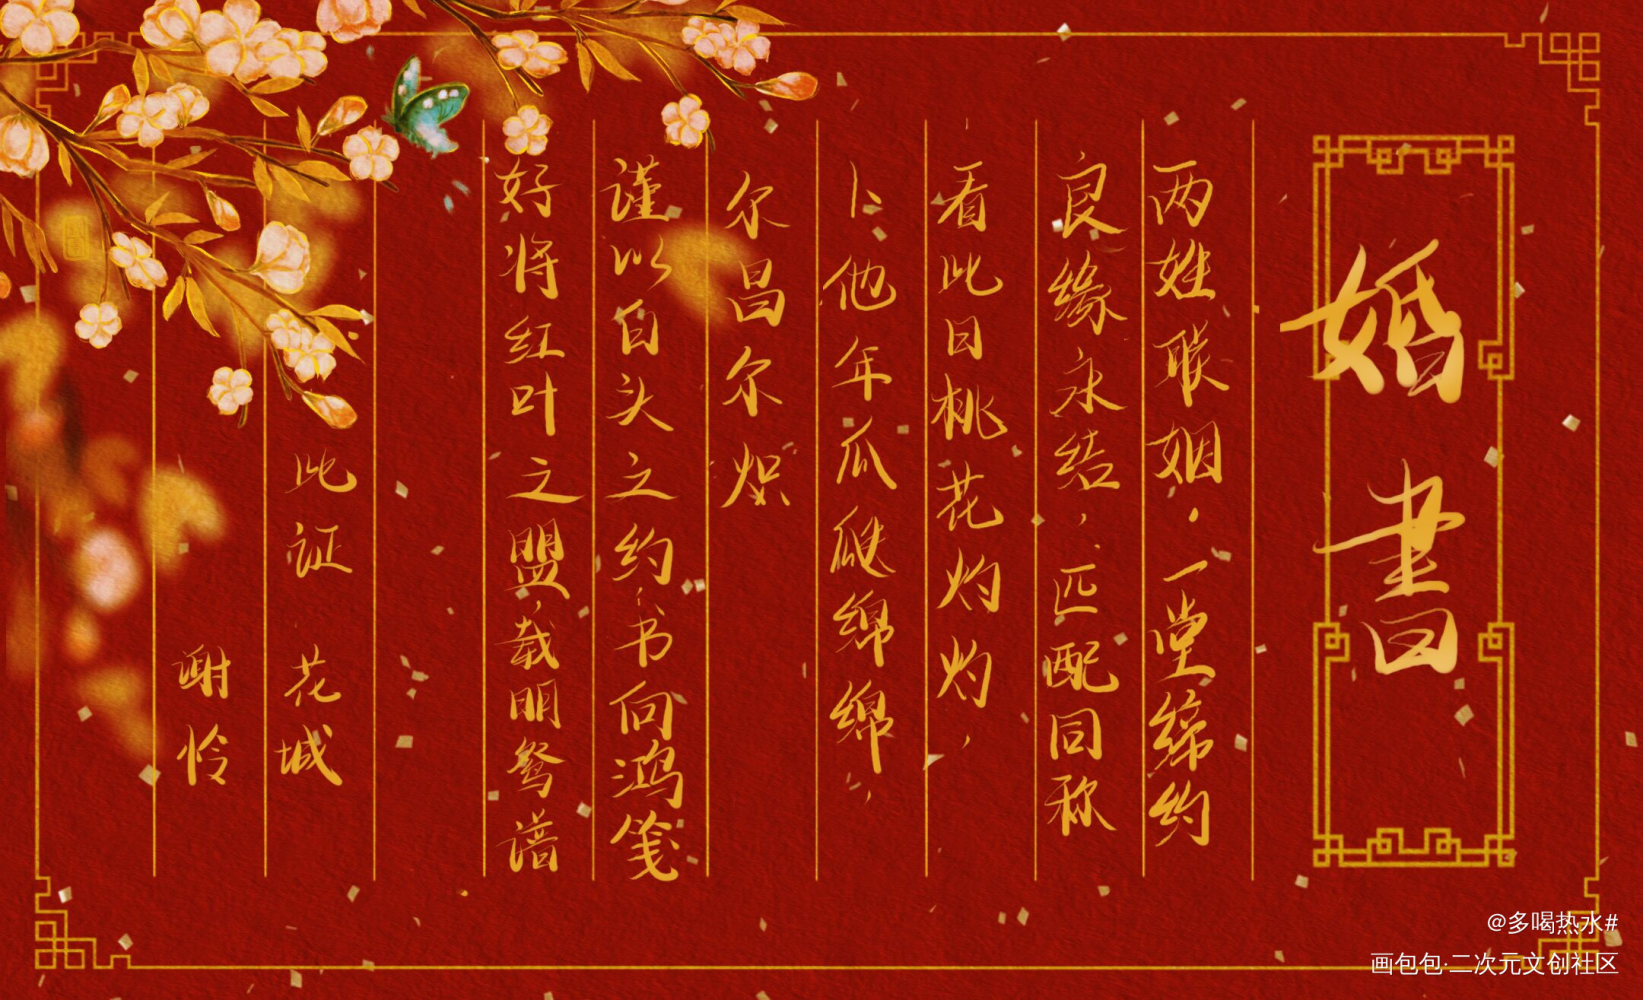 婚書
两姓联姻，一堂缔约
良缘永结，匹配同称
看此日桃花灼灼，
卜他年瓜瓞绵绵，
尔昌尔炽
谨以白头之约，书向鸿笺
好将红叶之盟，载明鸳谱
此证 花城
谢怜
@多喝热水#
画包包·二次元文创社区